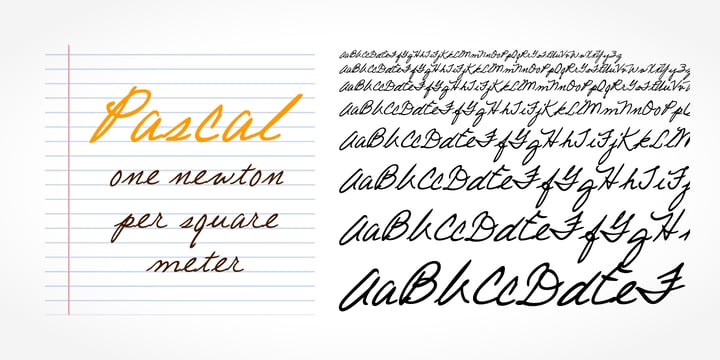 Pascal
one newton
per square
meter
AaBbCcDdEeFfGgHhIiJjKkLlMmNnOoPpQqRrSsTtUuVvWwXxYyZz
AaBbCcDdEeFfGgHhIiJjKkLlMmNnOoPpQqRrSsTtUuVvWwXxYyZz
AaBbCcDdEeFfGgHhIiJjKkLlMmNnOoPpQqRrSsTtUuVvW
AaBbCcDdEeFfGgHhIiJjKkLlMmNnOoPp
AaBbCcDdEeFfGgHhIiJjKkLlM
AaBbCcDdEeFfGgHhIiJ
AaBbCcDdEeFfGgHh
AaBbCcDdEeF